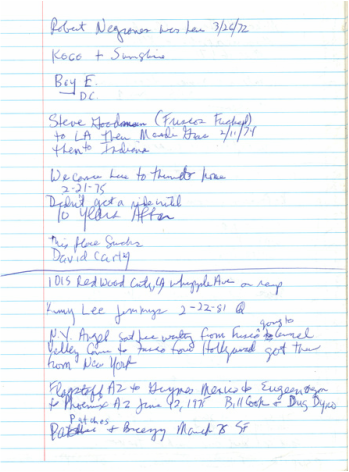 Robert Negrones was here 3/26/72
KoGo + Sunshine
Boy E.
D.C.
Steve Goodman (Frisco
to LA then Mardi Gras 2/11/74
then to Indiana
We came here to thumb home
2-21-75
Didn't get a ride until
10 years After
This place Sucks
David Carty
1015 Redwood City, CA whipple Ave on ramp
Kimy Lee Jennings 2-22-81 @
going to
N.Y. Angel sat here waiting from Frisco to Laurel
Valley Came to Frisco from Hollywood got there
from New York
Flagstaff AZ to Mexico to Eugene Oregon
to Phoenix AZ June 17, 197 Bill Cook + Doug
Patches
+ Breezy March 78 SF